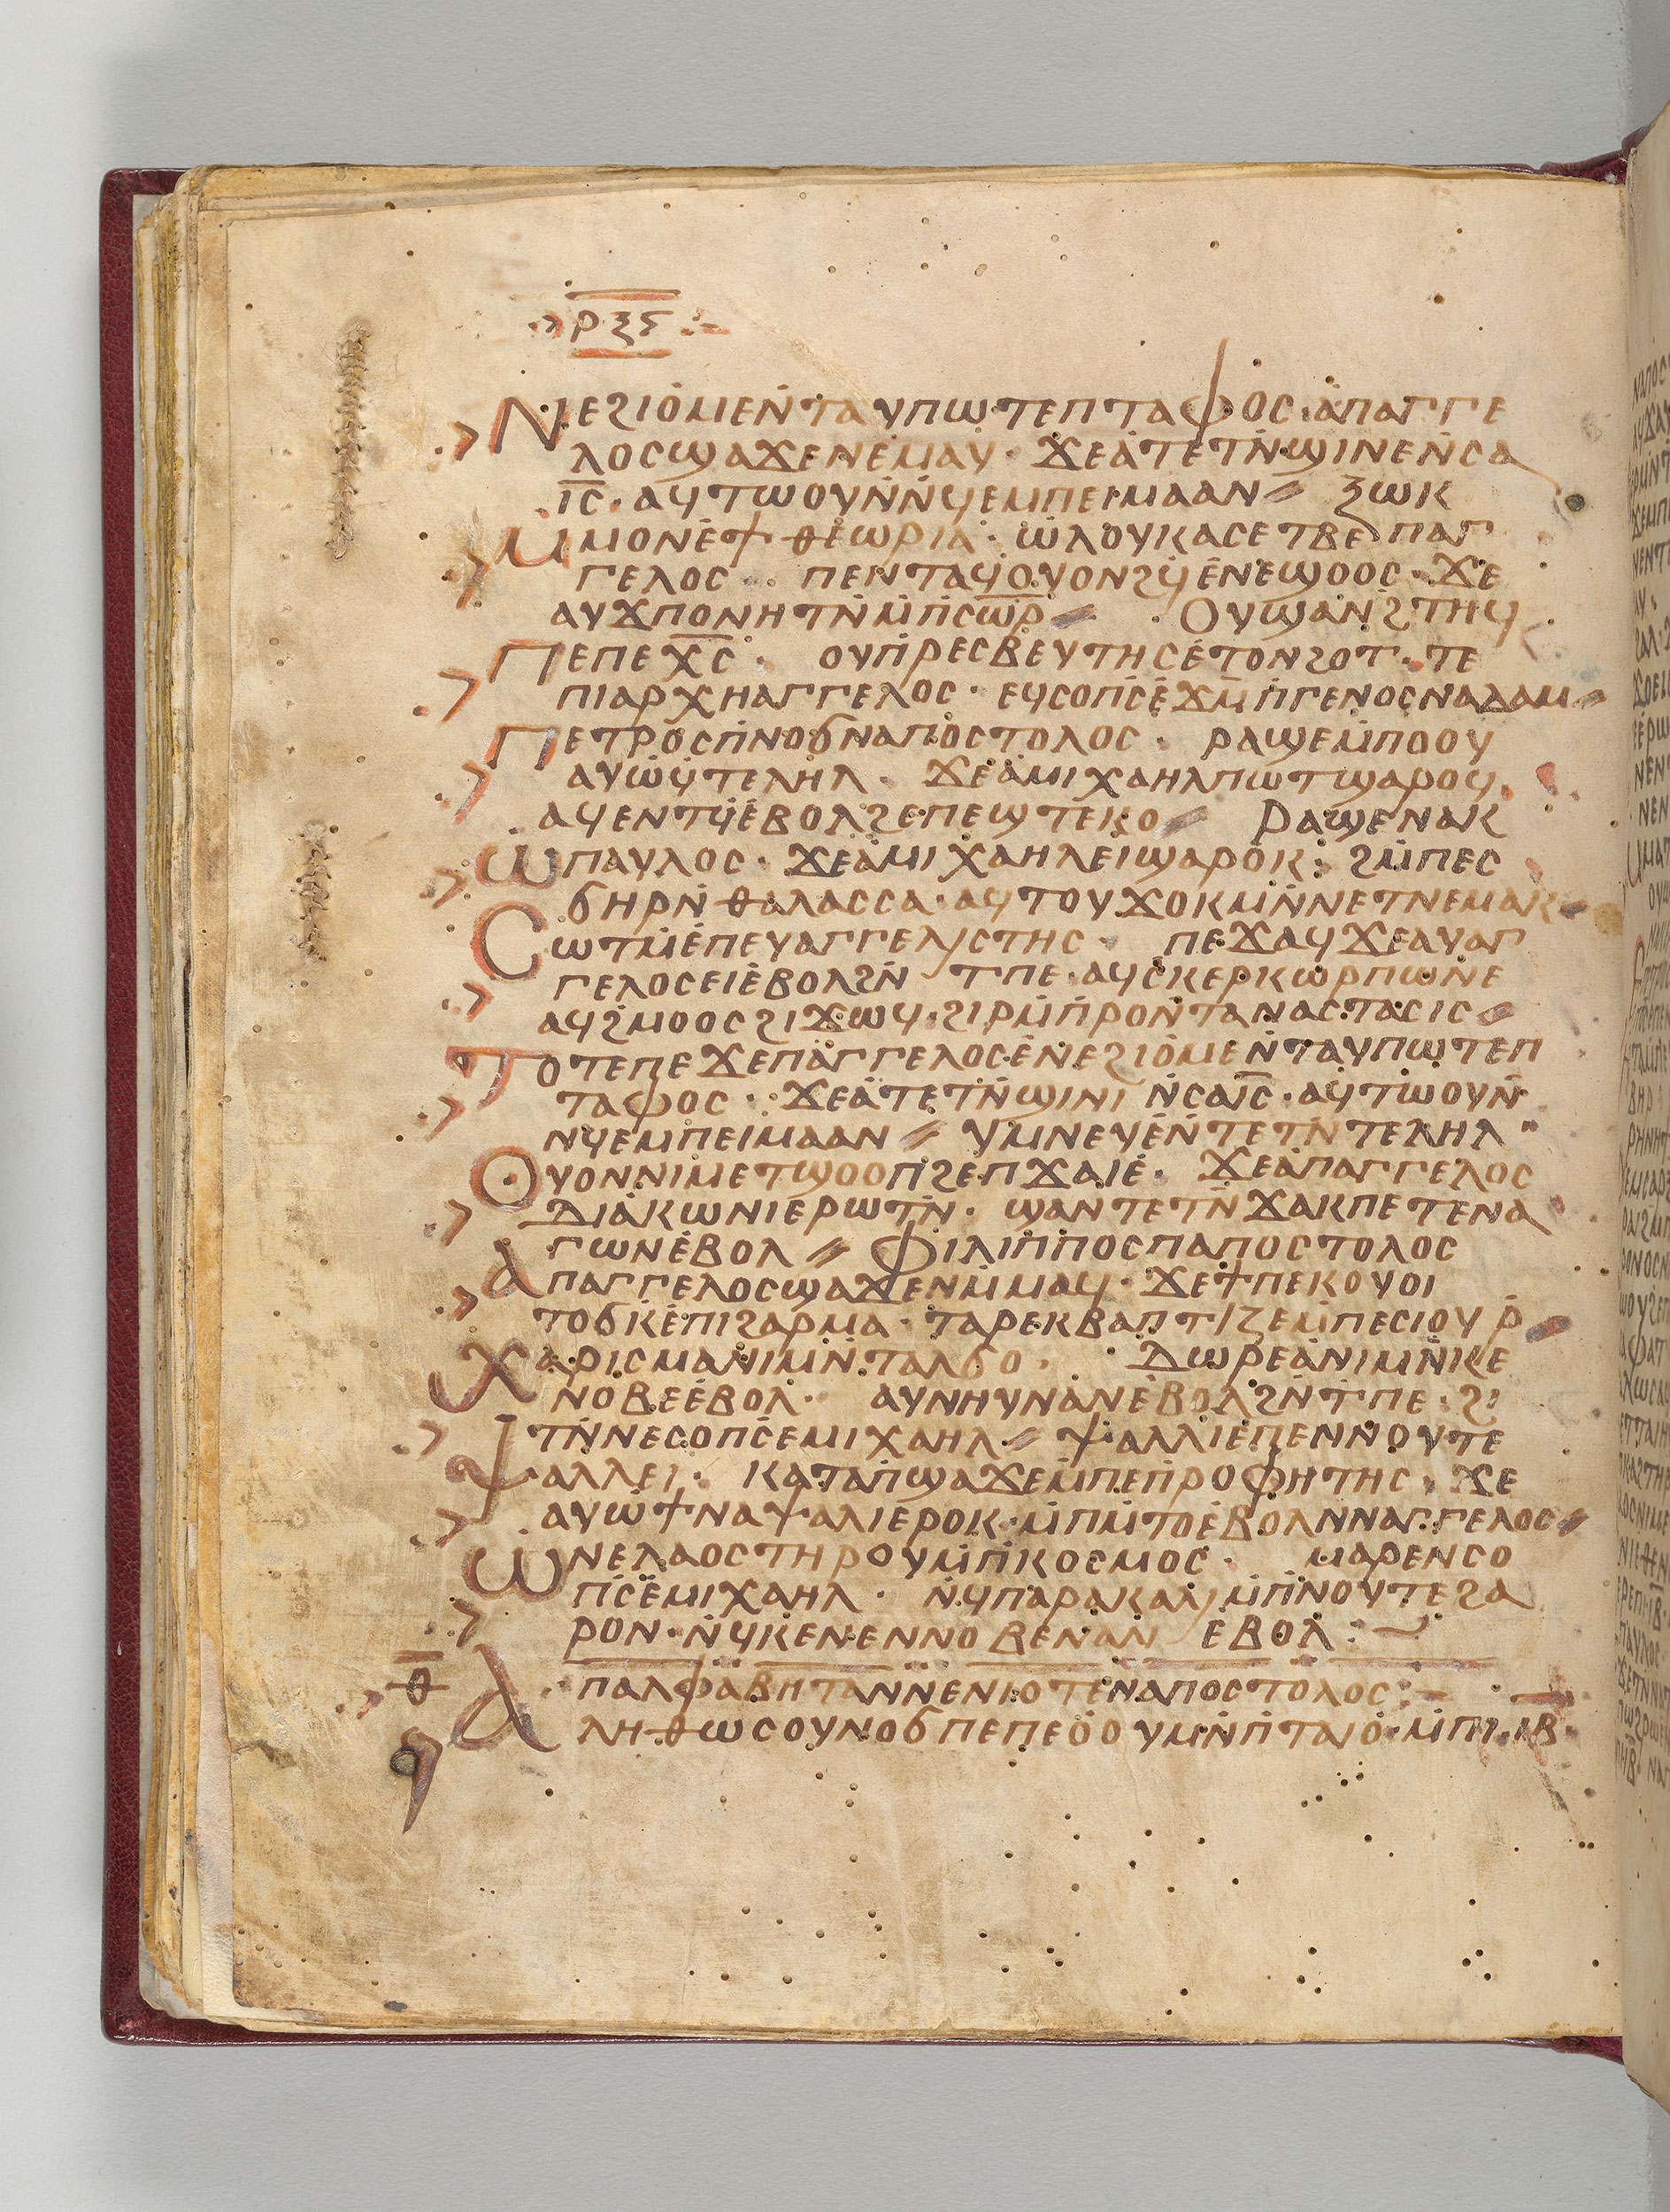 ⲣⲝⲋ
ⲛⲉϩⲓⲟ́ⲙⲉⲛ́ⲧⲁⲩⲡⲱⲧⲉⲡⲧⲁⲫⲟⲥ·ⲁ̇ⲡⲁⲅⲅⲉ
ⲗⲟⲥϣⲁϫⲉⲛⲉ́ⲙⲁⲩ· ϫⲉⲁ̇ⲧⲉⲧⲛ̇ϣⲓⲛⲉⲛ̇ⲥⲁ
ⲓ̅ⲥ̅·ⲁϥⲧⲱⲟⲩⲛ̇ⲛ̇ϥⲉⲙⲡⲉⲓⲙⲁⲁⲛ⸗ ⲝⲱⲕ
ⲙ̇ⲙⲟⲛⲉ́ϯⲑⲉ́ⲱⲣⲓⲁ· ⲱ̇ⲗⲟⲩⲕⲁⲥⲉⲧⲃⲉⲡⲁⲅ
ⲅⲉⲗⲟⲥ· ⲡⲉⲛⲧⲁϥⲟⲩⲟⲛϩϥ̇ⲉ́ⲛⲉϣⲟⲟⲥ·ϫⲉ
ⲁⲩϫⲡⲟⲛⲏⲧⲛ̇ⲙ̇ⲡ̇ⲥ̅ⲱ̅ⲣ̅⸗ ⲟⲩϣⲁⲛ̇ϩⲧⲏϥ
ⲡⲉⲡⲉⲭ̅ⲥ̅· ⲟⲩⲡ̇ⲣⲉⲥⲃⲉⲩⲧⲏⲥⲉ́ⲧⲟⲛϩⲟⲧ·ⲧⲉ
ⲡⲓⲁⲣⲭⲏⲁⲅⲅⲉⲗⲟⲥ· ⲉϥⲥⲟⲡ̇ⲥⲉ́ϫⲙ̇ⲡ̇ⲅⲉⲛⲟⲥⲛⲁⲇⲁⲙ⸗
ⲡⲉⲧⲣⲟⲥⲡ̇ⲛⲟϭⲛⲁⲡⲟⲥⲧⲟⲗⲟⲥ· ⲣⲁϣⲉⲙ̇ⲡⲟⲟⲩ
ⲁⲩⲱ̇ϥ̇ⲧⲉⲗⲏⲗ· ϫⲉⲁ̇ⲙⲓⲭⲁⲏⲗⲡⲱⲧϣⲁⲣⲟϥ
ⲁϥⲉⲛⲧϥ̇ⲉ́ⲃⲟⲗϩⲉⲡⲉϣⲧⲉⲕⲟ⸗ ⲣⲁϣⲉⲛⲁⲕ
ⲱⲡⲁⲩⲗⲟⲥ· ϫⲉⲁ̇ⲙⲓⲭⲁⲏⲗⲉⲓϣⲁⲣⲟⲕ· ϩⲙ̇ⲡⲉⲥ
ϭⲏⲣⲛ̇ⲑⲁⲗⲁⲥⲥⲁ·ⲁϥⲧⲟⲩϫⲟⲕⲙ̇ⲛ̇ⲛⲉⲧⲛⲉⲙⲁⲕ⸗
ⲥⲱⲧⲙ̇ⲉ́ⲡⲉⲩⲁⲅⲅⲉⲗⲓⲥⲧⲏⲥ· ⲡⲉϫⲁϥϫⲉⲁⲩⲁⲅ
ⲅⲉⲗⲟⲥⲉⲓⲉ́ⲃⲟⲗϩⲛ̇ ⲧⲡⲉ·ⲁϥⲥⲕⲉⲣⲕⲱⲣⲡⲱⲛⲉ
ⲁϥϩⲙⲟⲟⲥϩⲓϫⲱϥ·ϩⲓⲣⲙ̇ⲡ̇ⲣⲟⲛ̇ⲧⲁⲛⲁⲥⲧⲁⲥⲓⲥ⸗
ⲧⲟⲧⲉⲡⲉϫⲉⲡⲁⲅⲅⲉⲗⲟⲥ·ⲉ́ⲛⲉϩⲓⲟ́ⲙⲉⲛ̇ⲧⲁⲩⲡⲱⲧⲉⲡ
ⲧⲁⲫⲟⲥ· ϫⲉⲁ̇ⲧⲉⲧⲛ̇ϣⲓⲛⲓ ⲛ̇ⲥⲁⲓ̅ⲥ̅·ⲁϥⲧⲱⲟⲩⲛ̇
ⲛϥⲉⲙⲡⲉⲓⲙⲁⲁⲛ⸗ ⲩⲙⲛⲉⲩⲉ́ⲛ̇ⲧⲉⲧⲛ̇ⲧⲉⲗⲏⲗ
ⲟⲩⲟⲛⲛⲓⲙⲉⲧϣⲟⲟⲡϩⲉⲡϫⲁⲓⲉ́· ϫⲉⲁ̇ⲡⲁⲅⲅⲉⲗⲟⲥ
ⲇⲓⲁ́ⲕⲱⲛⲓⲉⲣⲱⲧⲛ̇· ϣⲁⲛⲧⲉⲧⲛ̇ϫⲁⲕⲡⲉⲧⲉⲛⲁ
ⲅⲱⲛⲉ́ⲃⲟⲗ⸗ ⲫⲓⲗⲓⲡⲡⲟⲥⲡⲁⲡⲟⲥⲧⲟⲗⲟⲥ
ⲁⲡⲁⲅⲅⲉⲗⲟⲥϣⲁϫⲉⲛⲙ̇ⲙⲁϥ·ϫⲉϯⲡⲉⲕⲟⲩⲟⲓ
ⲧⲟϭⲕ̇ⲉ́ⲡⲓϩⲁⲣⲙⲁ· ⲧⲁⲣⲉⲕⲃⲁⲡⲧⲓⲍⲉⲙ̇ⲡⲉⲥⲓⲟⲩⲣ̇⸗
ⲭⲁⲣⲓⲥⲙⲁⲛⲓⲙⲛ̇ⲧⲁⲗϭⲟ· ⲇⲱⲣⲉⲁ̇ⲛⲓⲙⲛ̇ⲕⲉ
ⲛⲟⲃⲉⲉ́ⲃⲟⲗ· ⲁⲩⲛⲏⲩⲛⲁⲛⲉ́ⲃⲟⲗϩⲛ̇ⲧ̇ⲡⲉ·ϩⲓ
ⲧⲛ̇ⲛⲉⲥⲟⲡ̇ⲥⲉⲙⲓⲭⲁⲏⲗ⸗ ⲯⲁⲗⲗⲓⲉ́ⲡⲉⲛⲛⲟⲩⲧⲉ
ⲯⲁⲗⲗⲉⲓ· ⲕⲁⲧⲁⲡ̇ϣⲁϫⲉⲙ̇ⲡⲉⲡ̇ⲣⲟⲫⲏⲧⲏⲥ·ϫⲉ
ⲁⲩⲱ̇ϯⲛⲁⲯⲁⲗⲓⲉⲣⲟⲕ·ⲙ̇ⲡⲙ̇ⲧⲟⲉ́ⲃⲟⲗⲛⲛⲁⲅⲅⲉⲗⲟⲥ⸗
ⲱⲛⲉⲗⲁⲟⲥⲧⲏⲣⲟⲩⲙ̇ⲡ̇ⲕⲟⲥⲙⲟⲥ· ⲙⲁⲣⲉⲛⲥⲟ
ⲡ̇ⲥⲉ̈ⲙⲓⲭⲁⲏⲗ· ⲛ̇ϥⲡⲁⲣⲁⲕⲁⲗⲓⲙ̇ⲡ̇ⲛⲟⲩⲧⲉϩⲁ
ⲣⲟⲛ·ⲛ̇ϥⲕⲉⲛⲉⲛⲛⲟⲃⲉⲛⲁⲛ ⲉⲃⲟⲗ:
ⲑ̅ ⲡⲁⲗⲫⲁⲃⲏⲧⲁⲛ̇ⲛⲉⲛⲓⲟⲧⲉⲛⲁⲡⲟⲥⲧⲟⲗⲟⲥ:
ⲁⲗⲏⲑⲱⲥⲟⲩⲛⲟϭⲡⲉⲡⲉⲟ́ⲟⲩⲙⲛ̇ⲡ̇ⲧⲁⲓⲟ́·ⲙ̇ⲡⲓⲓ̅ⲃ̅·